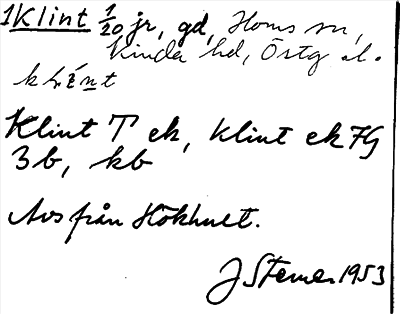 1 Klint 1/20 jr, gd, Horns sn,
Kinda hd, Östg. l.
Klint T ek, Klint ek 7G
3b, kb
Avs från Hökhult.
J Stemer 1953